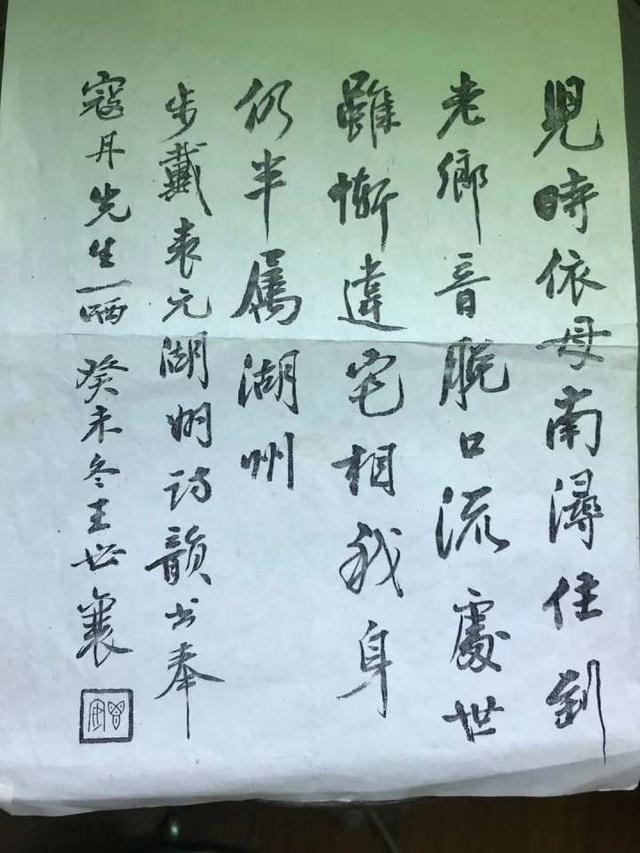 兒時依母南潯住到
老鄉音脱口流處世
雖慚違宅相我身
仍半属湖州
步戴表元湖州诗韻书奉
寇丹先生一哂 癸未冬王世襄